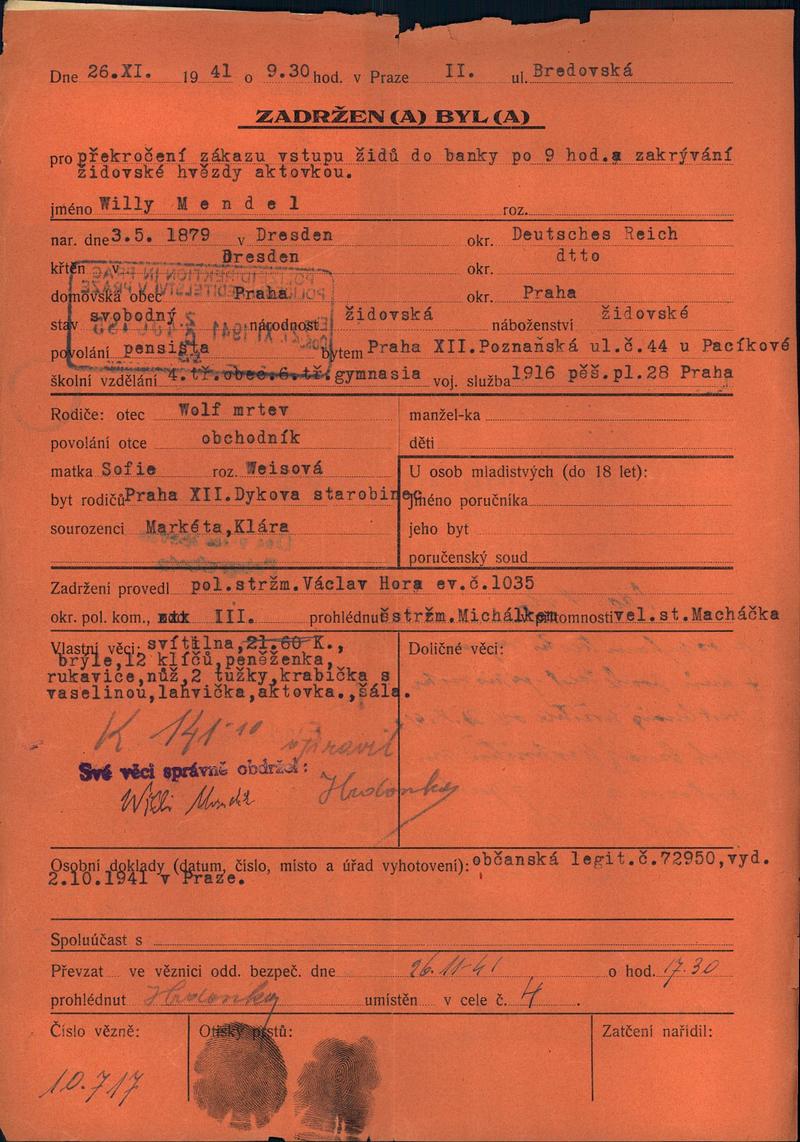 Dne 26.XI. 19 41 o 9.30 hod. v Praze II. ul. Bredovská
ZADRŽEN(A) BYL(A)
pro překročení zákazu vstupu židů do banky po 9 hod.a zakrývání
židovské hvězdy aktovkou.
jméno Willy Mendel roz.
nar. dne 3.5. 1879 v Dresden okr. Deutsches Reich
křtěn v Dresden okr. dtto
domovská obec Praha okr. Praha
stav svobodný národnost židovská náboženství židovské
povolání pensista bytem Praha XII.Poznaňská ul.č.44 u Pacíkové
školní vzdělání 4.tř.obec.6.tř.gymnasia voj. služba 1916 pěš.pl.28 Praha
Rodiče: otec Wolf mrtev manžel-ka
povolání otce obchodník děti
matka Sofie roz. Weisová U osob mladistvých (do 18 let):
byt rodičů Praha XII.Dykova starobinec jméno poručníka
sourozenci Markéta,Klára jeho byt
poručenský soud
Zadržení provedl pol.stržm.Václav Hora ev.č.1035
okr. pol. kom., III. prohlédnut stržm.Michálkem přítomnosti vel.st.Macháčka
Vlastní věci: svítilna,21.60 K., Doličné věci:
brýle,12 klíčů,peněženka,
rukavice,nůž,2 tužky,krabička s
vaselinou,lahvička,aktovka.,šála.
K 141-10
Své věci správně obdržel:
Willi Mendel
Osobní doklady (datum, číslo, místo a úřad vyhotovení): občanská legit.č.72950,vyd.
2.10.1941 v Praze.
Spoluúčast s
Převzat ve věznici odd. bezpeč. dne 26.11.41 o hod. 17.30
prohlédnut umístěn v cele č. 4 .
Číslo vězně: Otisky prstů: Zatčení nařídil:
10.717